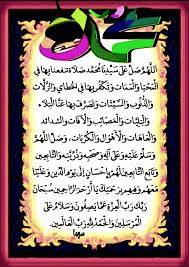 اللهم صل على سيدنا محمد صلاة تنفعنا بها في
المحيا والممات وتكفر بها في الخطايا والزلات
والذنوب والسيئات وتصرف بها عنا البلاء
والبليات والمصائب والآفات والشدائد
والعاهات والأهوال والكربات وصل اللهم
وسلم عليه وعلى آله وصحبه وذريته والتابعين
وتابعي التابعين لهم بإحسان إلى يوم الدين وعلينا
معهم وفيهم برحمتك يا أرحم الراحمين سبحان
ربك رب العزة عما يصفون وسلام على
المرسلين والحمد لله رب العالمين